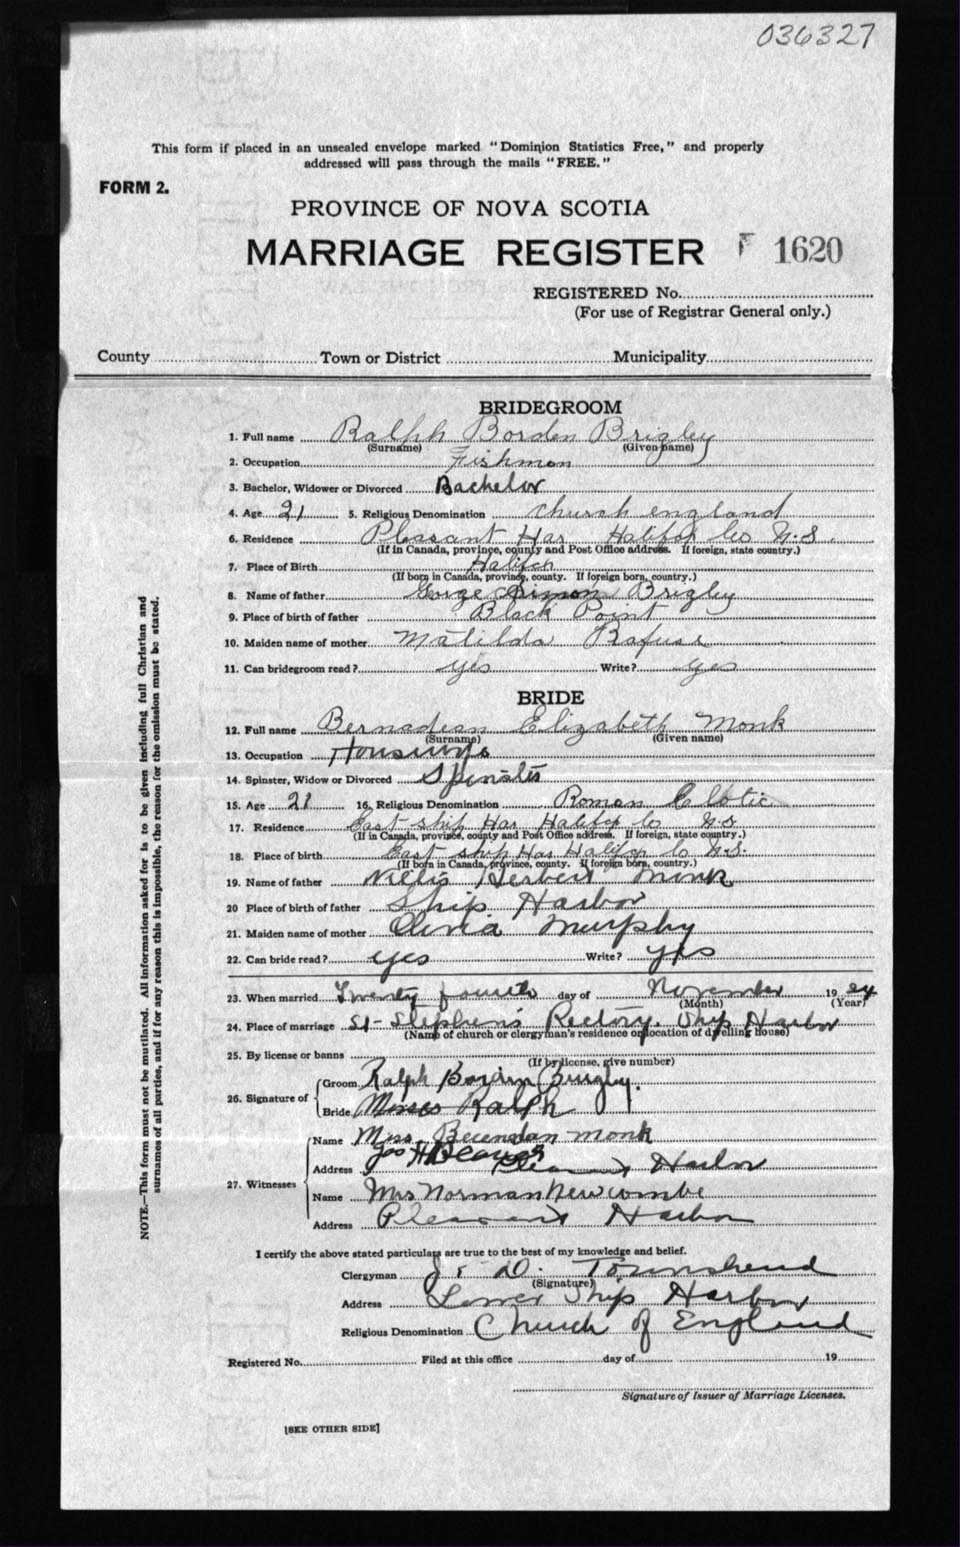 036327
This form if placed in an unsealed envelope marked "Dominion Statistics Free," and properly
addressed will pass through the mails "FREE."
FORM 2.
PROVINCE OF NOVA SCOTIA
MARRIAGE REGISTER 1620
REGISTERED No.
(For use of Registrar General only.)
County Town or District Municipality
BRIDEGROOM
1. Full name Ralph Borden Brigley
(Surname) (Given name)
2. Occupation Fishmon
3. Bachelor, Widower or Divorced Bachelor
4. Age 21 5. Religious Denomination church england
6. Residence Pleasant Har Halifax Co N.S.
(If in Canada, province, county and Post Office address. If foreign, state country.)
7. Place of Birth Halifax
(If born in Canada, province, county. If foreign born, country.)
8. Name of father Gorge Simon Brigley
9. Place of birth of father Black Point
10. Maiden name of mother Matilda Rafuse
11. Can bridegroom read? yes Write? yes
BRIDE
12. Full name Bernadean Elizabeth Monk
(Surname) (Given name)
13. Occupation
14. Spinster, Widow or Divorced Spinster
15. Age 21 16. Religious Denomination Roman
17. Residence East Ship Har Halifax Co N.S
(If in Canada, province, county and Post Office address. If foreign, state country.)
18. Place of birth East Ship Har Halifax Co N.S.
(If born in Canada, province, county. If foreign born, country.)
19. Name of father Herbert Monk
20 Place of birth of father Ship Harbor
21. Maiden name of mother Murphy
22. Can bride read? yes Write? yes
23. When married Twenty fourth day of November 19
(Month) (Year)
24. Place of marriage St Stephen's Rectory, Ship Harbor
(Name of church or clergyman's residence or location of dwelling house)
25. By license or banns
(If by license, give number)
26. Signature of Groom Ralph Borden Brigley.
Bride Ralph
27. Witnesses
Name Miss Monk
Jas H
Address Pleasant Harbor
Name Mrs Norman Newcombe
Address Pleasant Harbor
I certify the above stated particulars are true to the best of my knowledge and belief.
Clergyman D. Townshend
(Signature)
Address Lower Ship Harbor
Religious Denomination Church of England
Registered No. Filed at this office day of 19
Signature of Issuer of Marriage Licenses.
[SEE OTHER SIDE]
NOTE.—This form must not be mutilated. All information asked for is to be given including full Christian and
surnames of all parties, and if for any reason this is impossible, the reason for the omission must be stated.